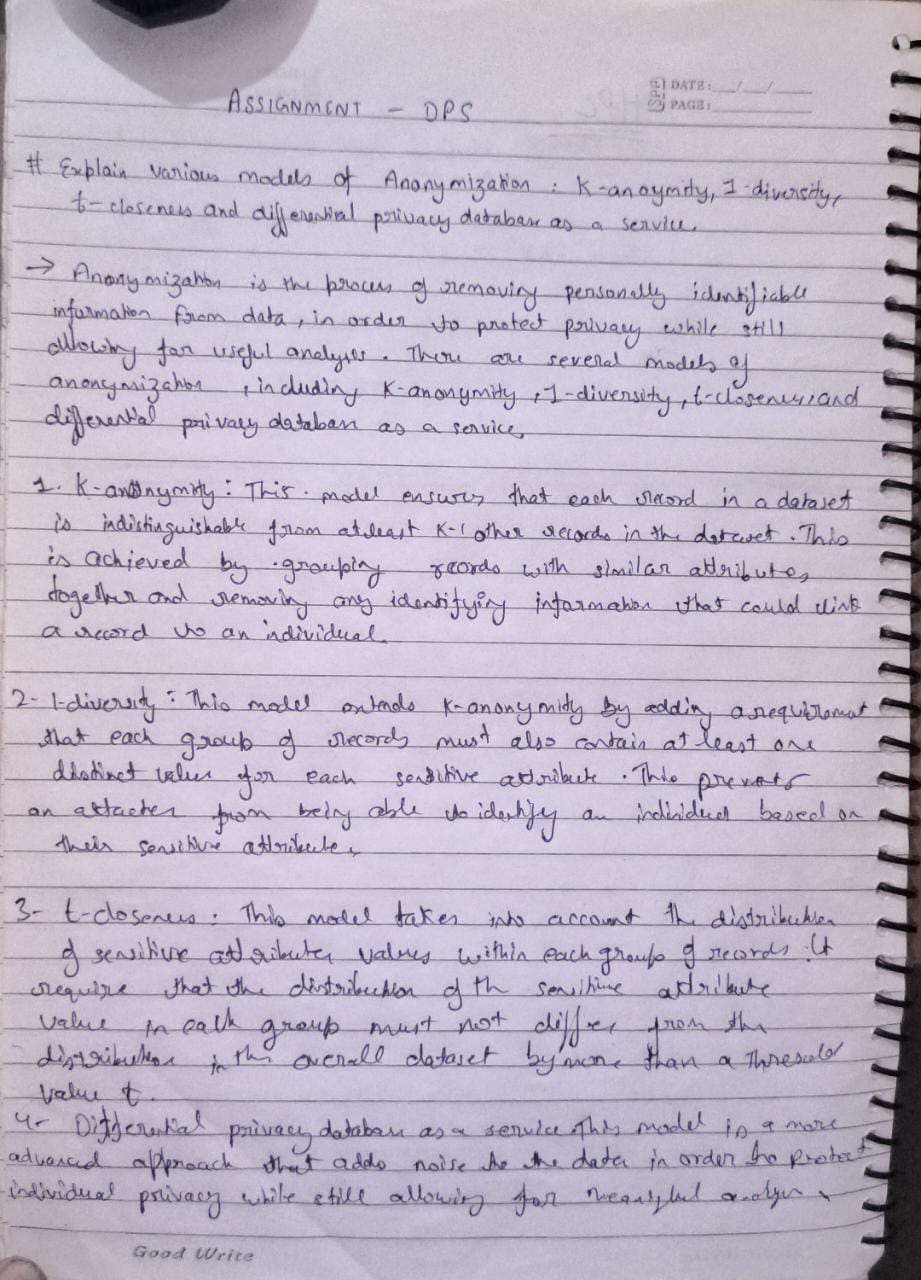 ASSIGNMENT - DPS
SPP DATE: __/__/__
PAGE:
# Explain various models of Anonymization : K-anoymity, 1-diversity,
t-closeness and differential privacy database as a service.
→ Anonymization is the process of removing personally identifiable
information from data, in order to protect privacy while still
allowing for useful analysis. There are several models of
anonymization, including K-anonymity, 1-diversity, t-closeness, and
differential privacy database as a service,
1. K-anonymity: This model ensures that each record in a dataset
is indistinguishable from atleast K-1 other records in the dataset. This
is achieved by grouping records with similar attributes
together and removing any identifying information that could link
a record to an individual.
2- l-diversity: This model extends K-anonymity by adding a requirement
that each group of records must also contain at least one
distinct value for each sensitive attribute. This prevents
an attacker from being able to identify an individual based on
their sensitive attribute.
3- t-closeness: This model takes into account the distribution
of sensitive attributes values within each group of records. It
require that the distribution of th sensitive attribute
value in each group must not differ from the
distribution in the overall dataset by more than a threshold
value t.
4- Differential privacy database as a service This model is a more
advanced approach that adds noise to the data in order to protect
individual privacy while still allowing for meaningful analysis.
Good Write